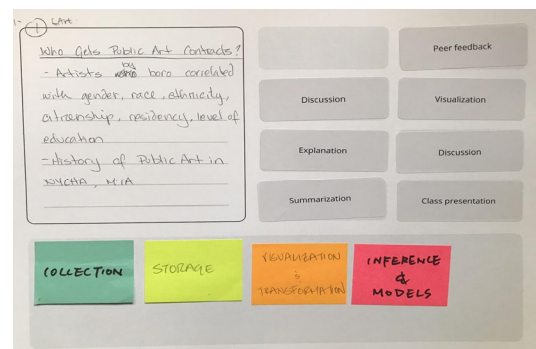 1
Art
Who Gets Public Art Contracts?
- Artists by boro corielated
with gender, race, ethnicity,
citizenship, residency, level of
education
- History of Public Art in
NYCHA, MIA
Peer feedback
Discussion
Visualization
Explanation
Discussion
Summarization
Class presentation
COLLECTION
STORAGE
VISUALIZATION
&
TRANSFORMATION
INFERENCE
&
MODELS